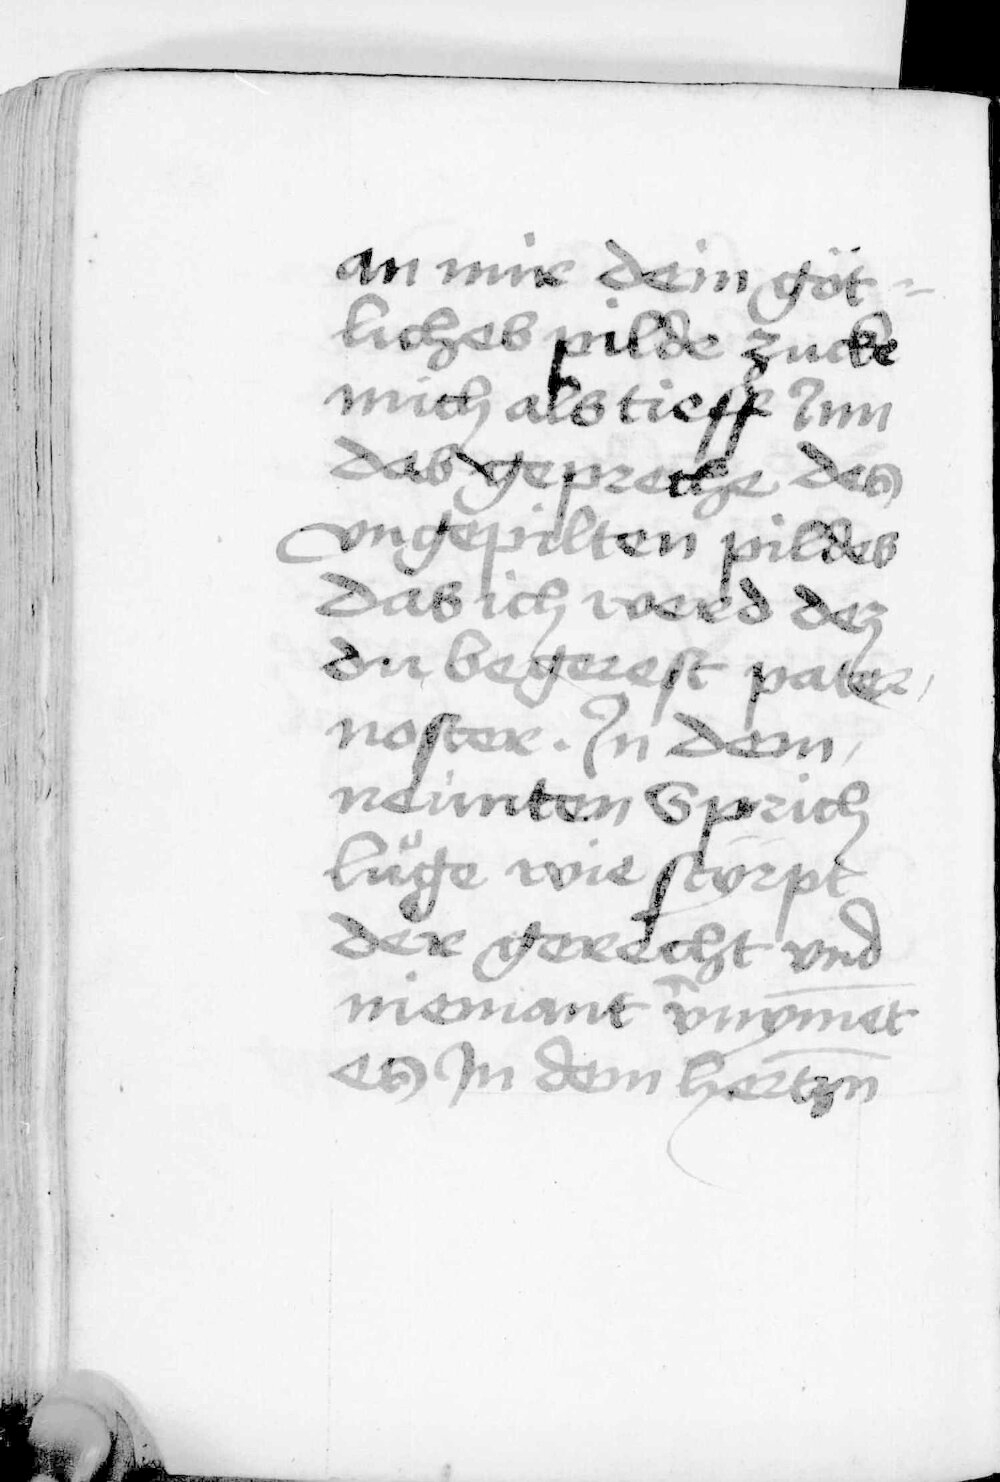 an mir dein göt-
liches pilde zucke
mich als tieff Inn
das gepreche des
vngepilten pildes
das ich werd dez
du begerest pater
noster. In dem
neünten Sprich
lüge wie styrpt
der gerecht vnd
niemant v̄nymet
es In dem hertzn̄